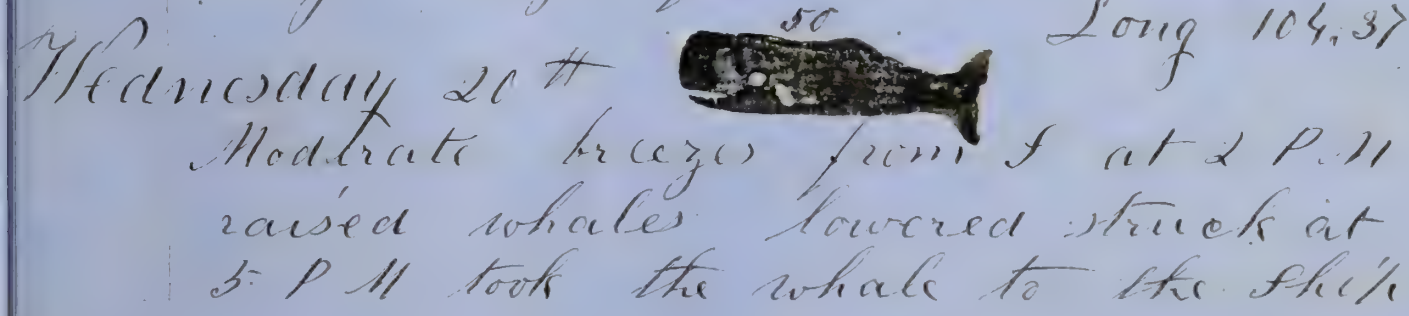 50 Long 104,37
Wednesday 20th
Moderate breezes from S at 2 P.M
raised whales lowered struck at
5 P M took the whale to the ship